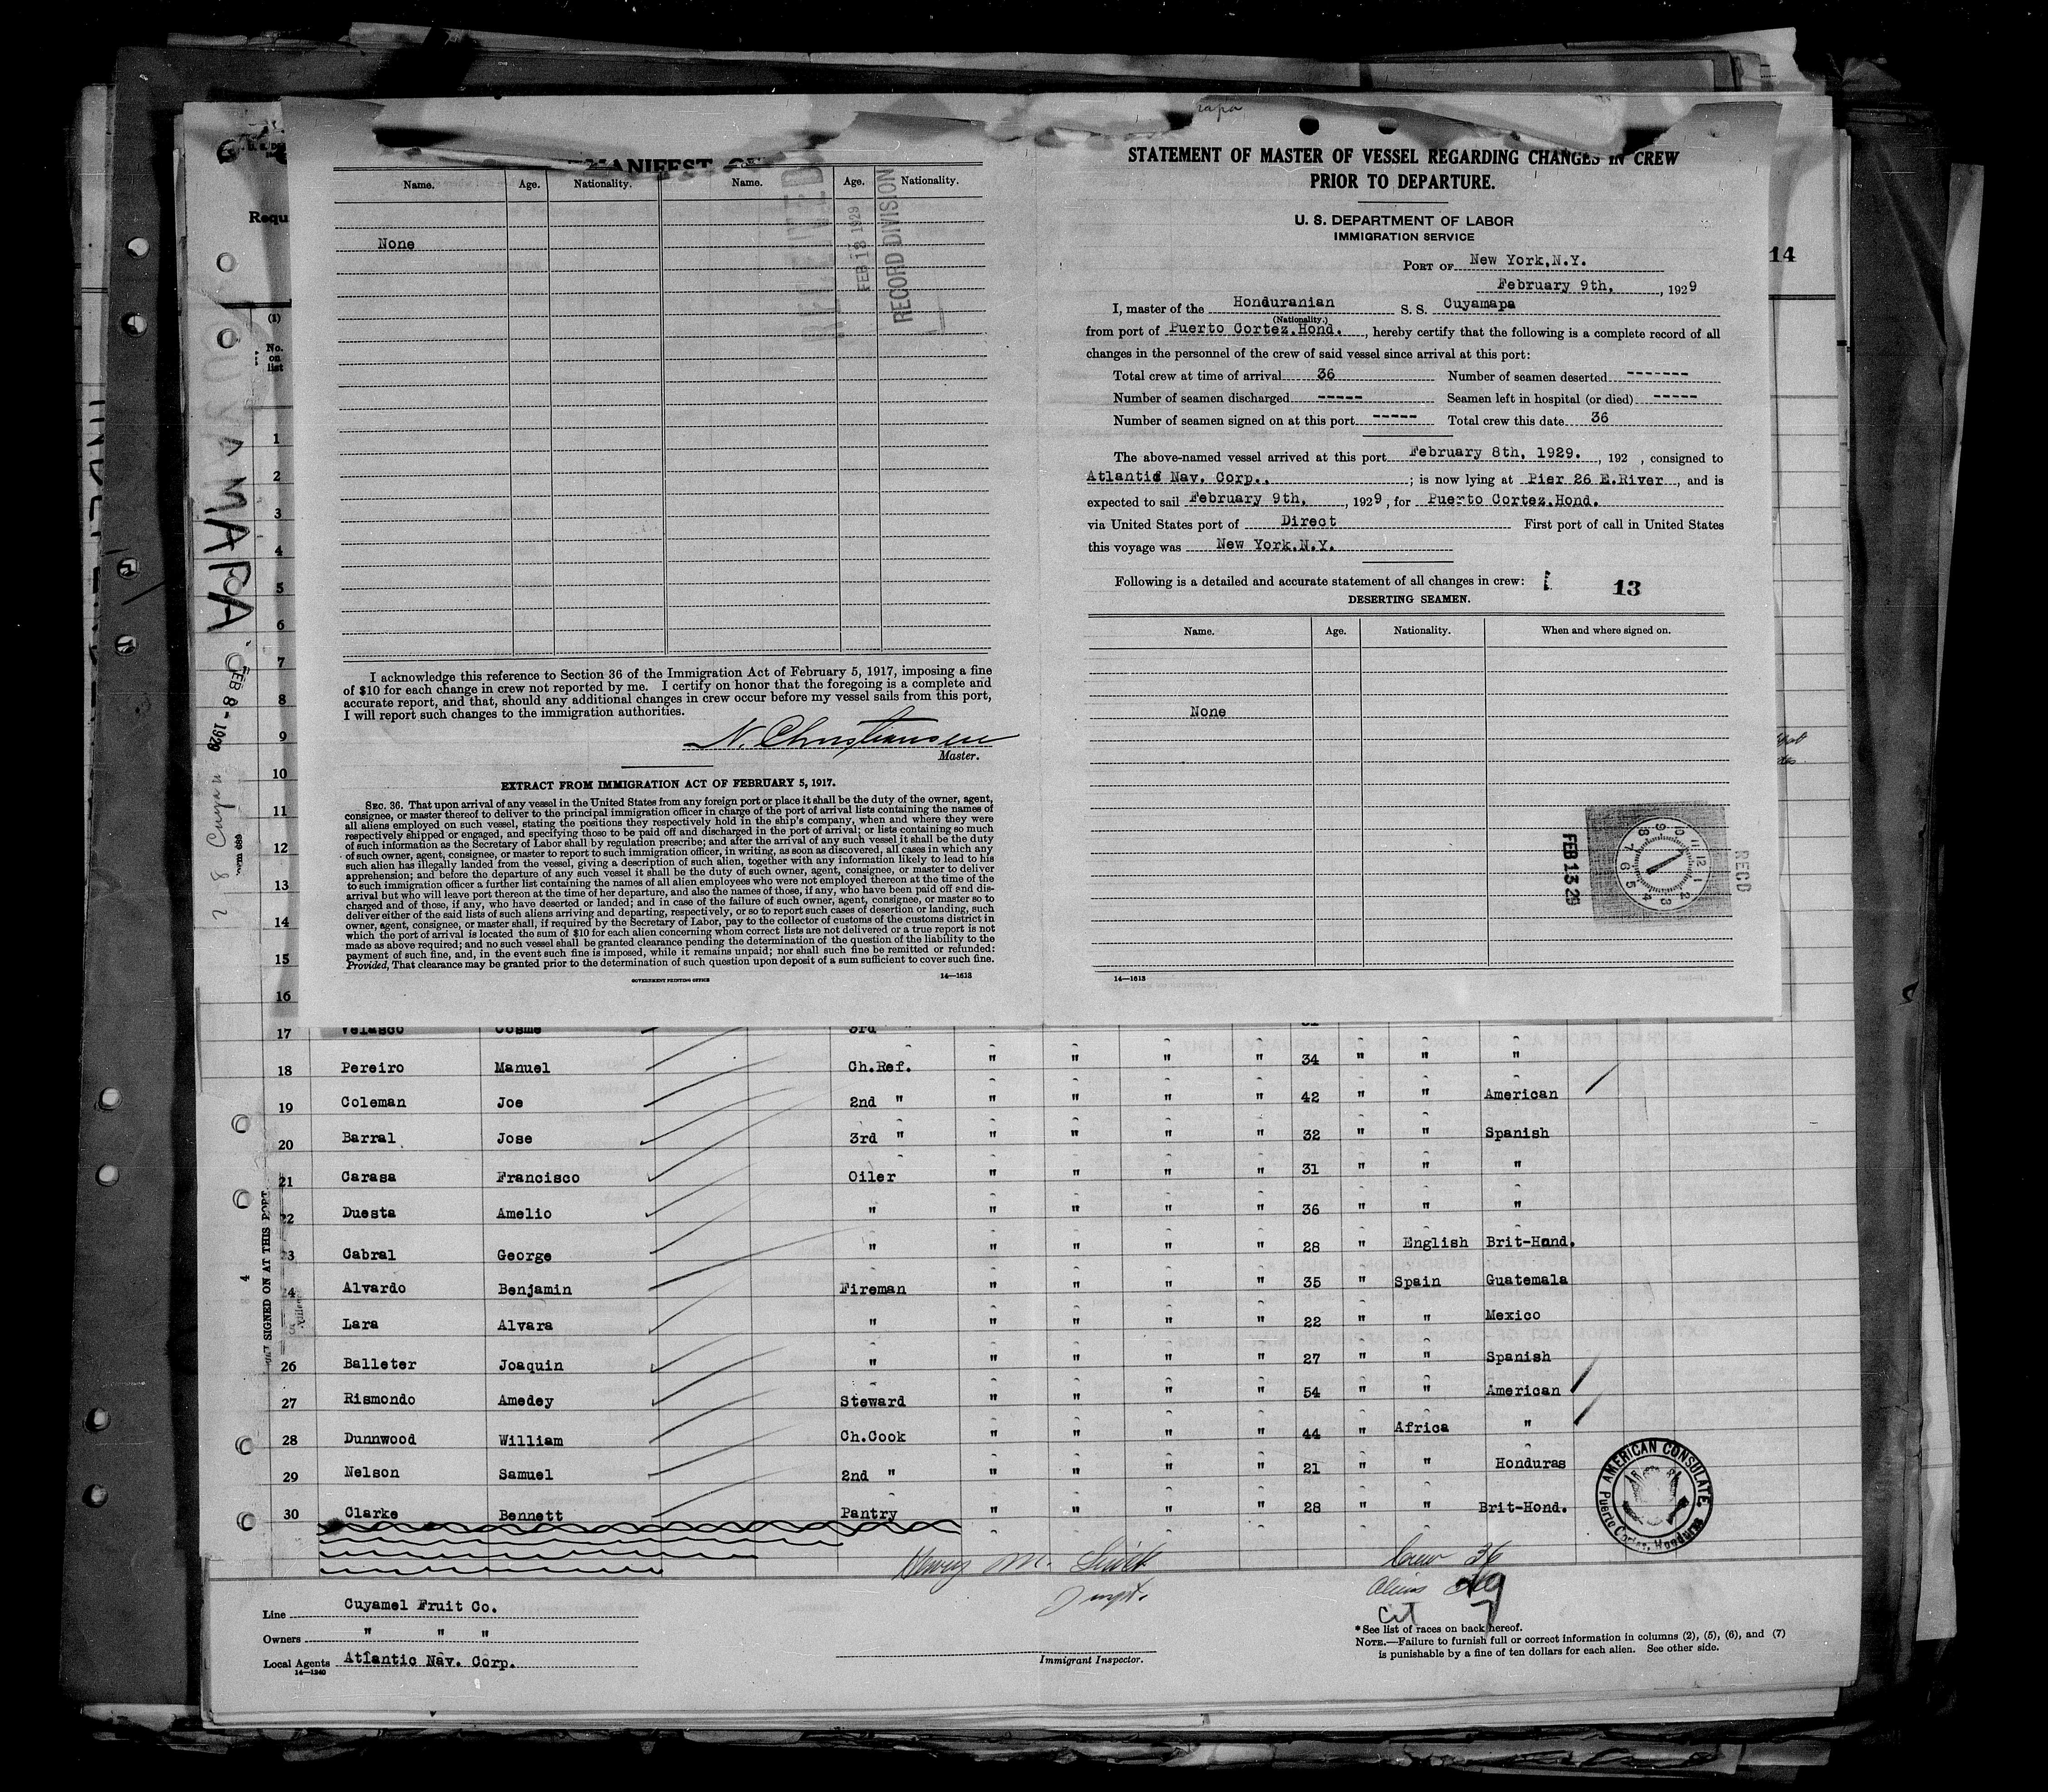 MANIFEST OF
Name. Age. Nationality. Name. Age. Nationality.
None
RECEIVED
FEB 13 1929
RECORD DIVISION
I acknowledge this reference to Section 36 of the Immigration Act of February 5, 1917, imposing a fine
of $10 for each change in crew not reported by me. I certify on honor that the foregoing is a complete and
accurate report, and that, should any additional changes in crew occur before my vessel sails from this port,
I will report such changes to the immigration authorities.
N. Christiansen
Master.
EXTRACT FROM IMMIGRATION ACT OF FEBRUARY 5, 1917.
SEC. 36. That upon arrival of any vessel in the United States from any foreign port or place it shall be the duty of the owner, agent,
consignee, or master thereof to deliver to the principal immigration officer in charge of the port of arrival lists containing the names of
all aliens employed on such vessel, stating the positions they respectively hold in the ship's company, when and where they were
respectively shipped or engaged, and specifying those to be paid off and discharged in the port of arrival; or lists containing so much
of such information as the Secretary of Labor shall by regulation prescribe; and after the arrival of any such vessel it shall be the duty
of such owner, agent, consignee, or master to report to such immigration officer, in writing, as soon as discovered, all cases in which any
such alien has illegally landed from the vessel, giving a description of such alien, together with any information likely to lead to his
apprehension; and before the departure of any such vessel it shall be the duty of such owner, agent, consignee, or master to deliver
to such immigration officer a further list containing the names of all alien employees who were not employed thereon at the time of the
arrival but who will leave port thereon at the time of her departure, and also the names of those, if any, who have been paid off and dis-
charged and of those, if any, who have deserted or landed; and in case of the failure of such owner, agent, consignee, or master so to
deliver either of the said lists of such aliens arriving and departing, respectively, or so to report such cases of desertion or landing, such
owner, agent, consignee, or master shall, if required by the Secretary of Labor, pay to the collector of customs of the customs district in
which the port of arrival is located the sum of $10 for each alien concerning whom correct lists are not delivered or a true report is not
made as above required; and no such vessel shall be granted clearance pending the determination of the question of the liability to the
payment of such fine, and, in the event such fine is imposed, while it remains unpaid; nor shall such fine be remitted or refunded:
Provided, That clearance may be granted prior to the determination of such question upon deposit of a sum sufficient to cover such fine.
GOVERNMENT PRINTING OFFICE 14—1613
STATEMENT OF MASTER OF VESSEL REGARDING CHANGES IN CREW
PRIOR TO DEPARTURE.
U. S. DEPARTMENT OF LABOR
IMMIGRATION SERVICE
PORT OF New York,N.Y.
February 9th, , 1929
I, master of the Honduranian S. S. Cuyamapa
(Nationality.)
from port of Puerto Cortez,Hond. , hereby certify that the following is a complete record of all
changes in the personnel of the crew of said vessel since arrival at this port:
Total crew at time of arrival 36 Number of seamen deserted -------
Number of seamen discharged ----- Seamen left in hospital (or died) -----
Number of seamen signed on at this port ----- Total crew this date 36
The above-named vessel arrived at this port February 8th, 1929. , 192 , consigned to
Atlantic Nav. Corp.. ; is now lying at Pier 26 E.River , and is
expected to sail February 9th, , 1929 , for Puerto Cortez,Hond.
via United States port of Direct First port of call in United States
this voyage was New York.N.Y.
Following is a detailed and accurate statement of all changes in crew: 13
DESERTING SEAMEN.
Name. Age. Nationality. When and where signed on.
None
FEB 13 29
RECD
14—1613
14
Requ
(1)
No.
on
list
CUYAMAPA
FEB 8 - 1929
1
2
3
4
5
6
7
8
9
10
11
12
13
14
15
16
17 Velasco Cosme 3rd "
18 Pereiro Manuel Ch.Ref. " " " " 34 " " "
19 Coleman Joe 2nd " " " " " 42 " " American
20 Barral Jose 3rd " " " " " 32 " " Spanish
21 Carasa Francisco Oiler " " " " 31 " " "
22 Duesta Amelio " " " " " 36 " " "
23 Cabral George " " " " " 28 " English Brit-Hond.
24 Alvardo Benjamin Fireman " " " " 35 " Spain Guatemala
5 Lara Alvara " " " " " 22 " " Mexico
26 Balleter Joaquin " " " " " 27 " " Spanish
27 Rismondo Amedey Steward " " " " 54 " " American
28 Dunnwood William Ch.Cook " " " " 44 " Africa "
29 Nelson Samuel 2nd " " " " " 21 " " Honduras
30 Clarke Bennett Pantry " " " " 28 " " Brit-Hond.
SIGNED ON AT THIS PORT
4
AMERICAN CONSULATE
Puerto Cortes, Honduras
Henry M.
Crew 36
Aliens 29
Cit 7
Line Cuyamel Fruit Co.
Owners " " "
Local Agents Atlantic Nav. Corp.
14—1240
Immigrant Inspector.
* See list of races on back hereof.
NOTE.—Failure to furnish full or correct information in columns (2), (5), (6), and (7)
is punishable by a fine of ten dollars for each alien. See other side.